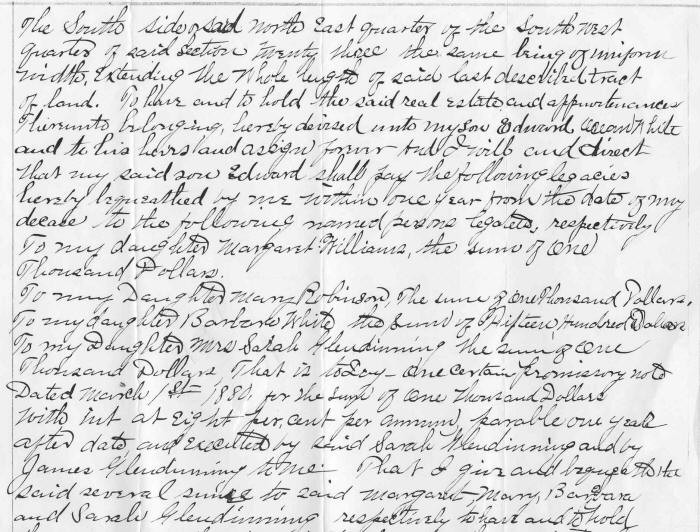 The South side of said north East quarter of the South West
quarter of said Section Twenty three the same being of uniform
width, Extending the whole length of said last described tract
of land. To have and to hold the said real estate and appurtenances
Thereunto belonging, hereby devised unto my son Edward White
and to his heirs and assigns forever And I will and direct
that my said son Edward shall pay the following legacies
hereby bequeathed by me within one year from the date of my
decease to the following named persons legatees, respectively
To my daughter Margaret Williams, the sum of One
Thousand Dollars.
To my Daughter Mary Robinson, The sum of One Thousand Dollars.
To my daughter Barbara White, the Sum of Fifteen Hundred Dollars
To my Daughter Mrs Sarah Glendinning the sum of One
Thousand Dollars That is to Say - One certain promissory note
Dated March 1st 1880. for the sum of One Thousand Dollars
With int at Eight per cent per annum, payable one year
after date and Executed by said Sarah Glendinning and by
James Glendinning to me - That I give and bequeath the
said several sums to said Margaret - Mary, Barbara
and Sarah Glendinning respectively to have and to hold